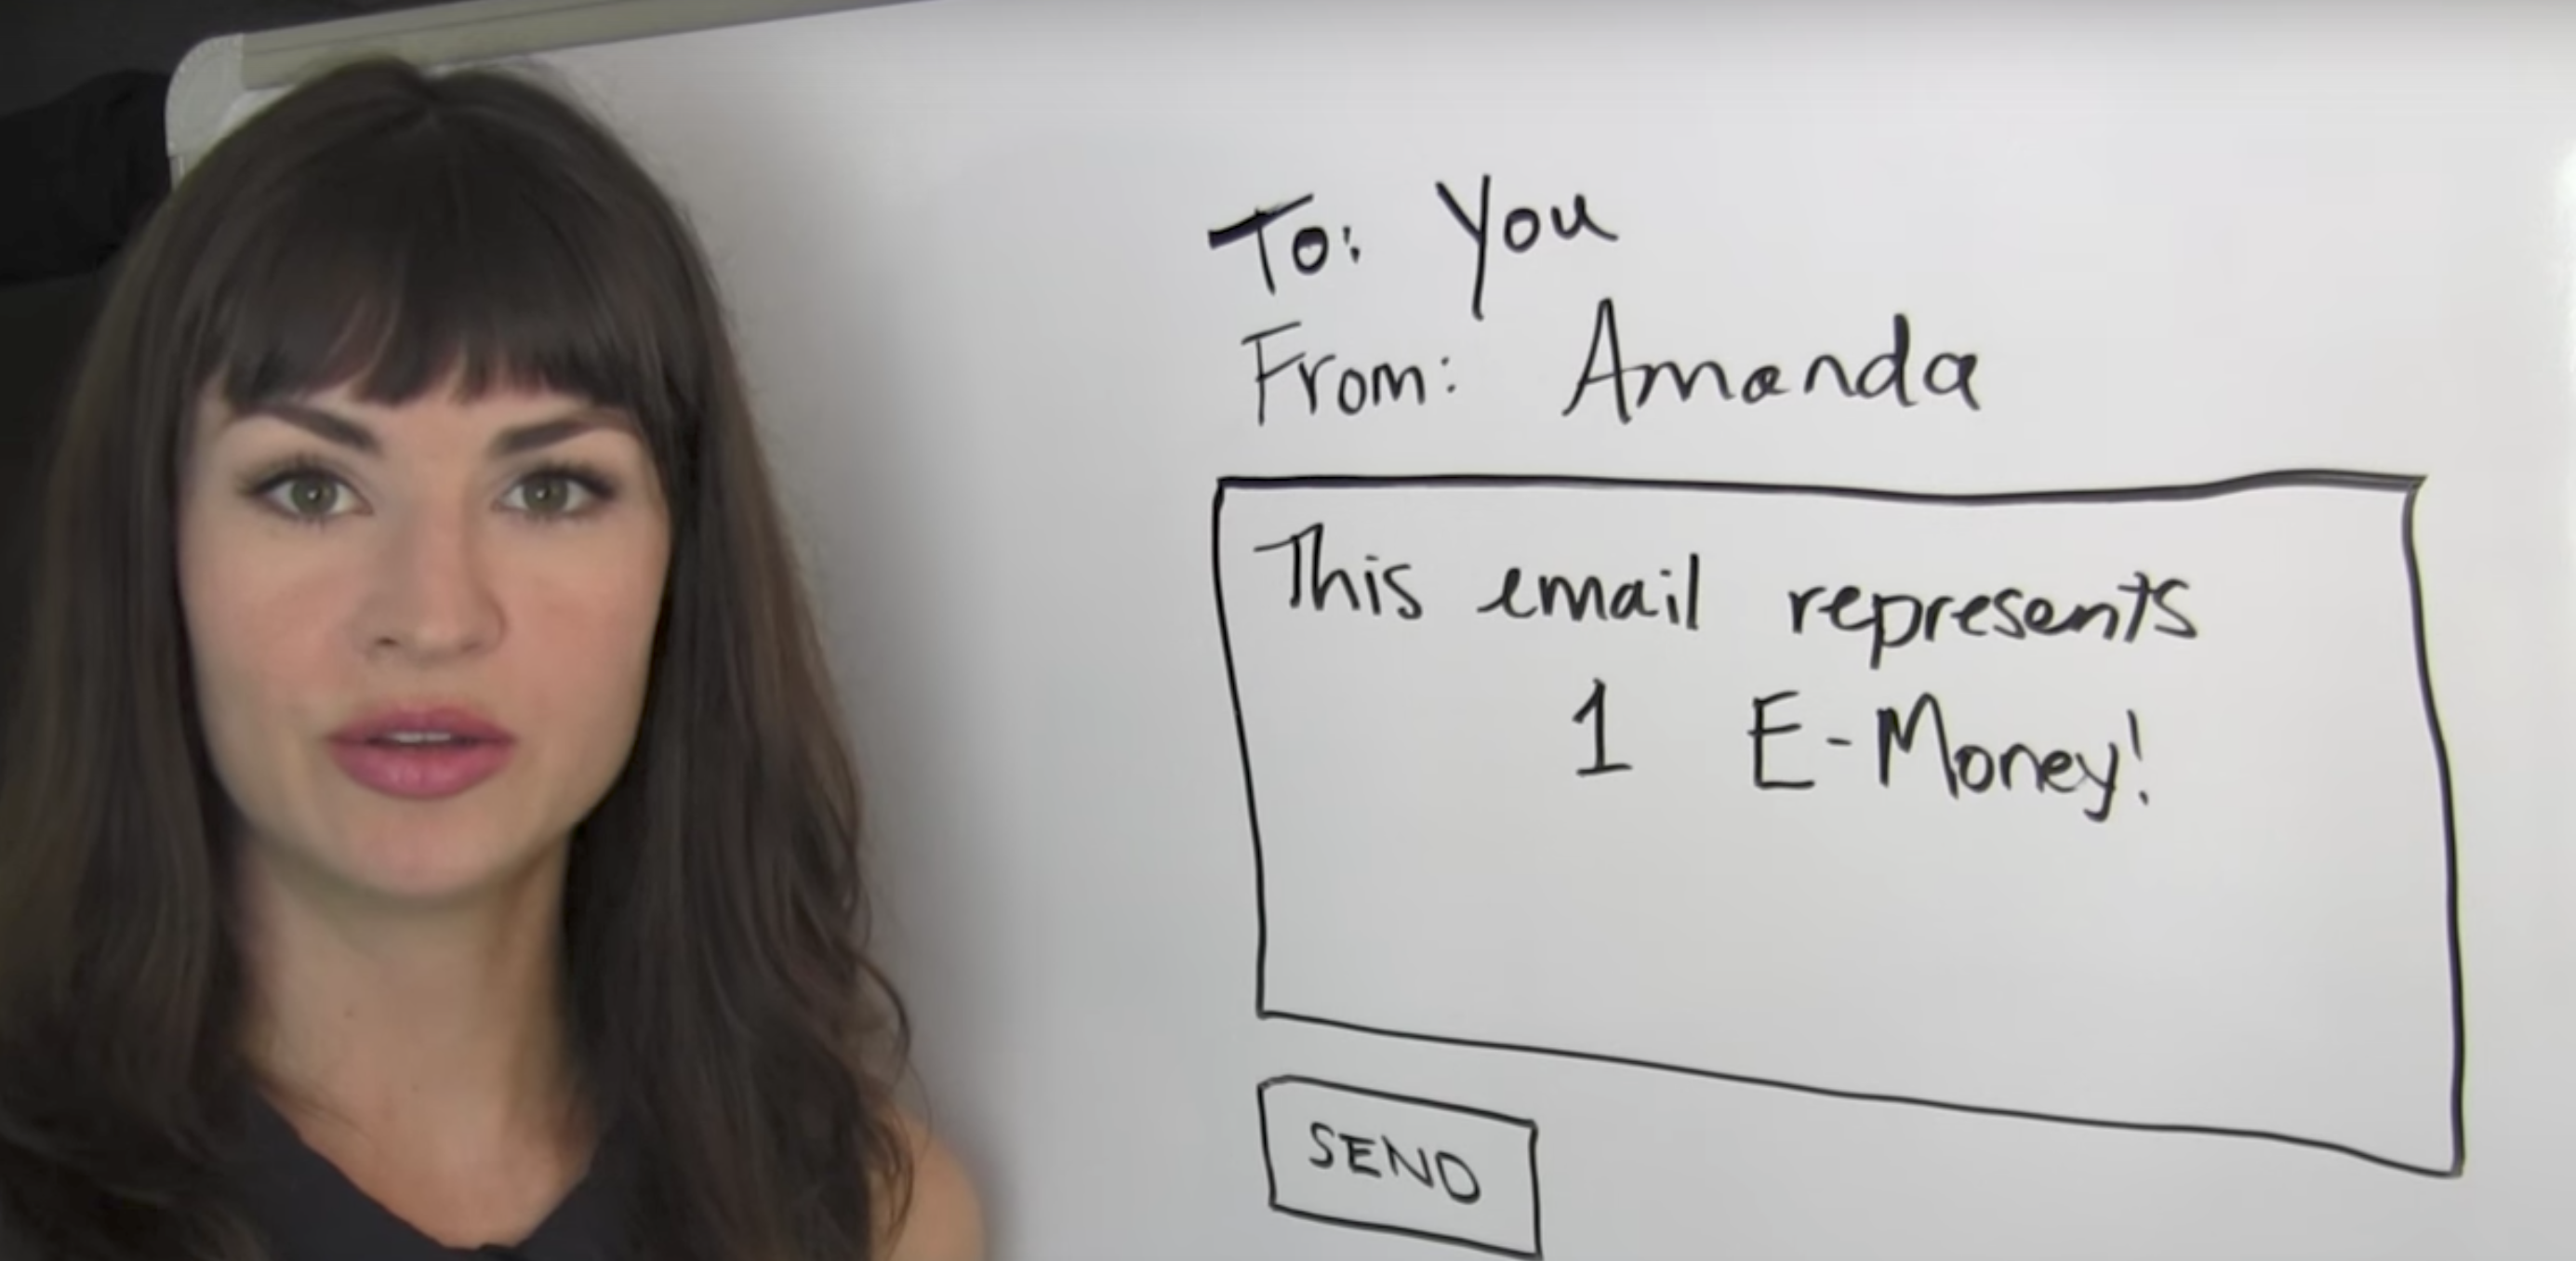 To: You
From: Amanda
This email represents
1 E-Money!
SEND